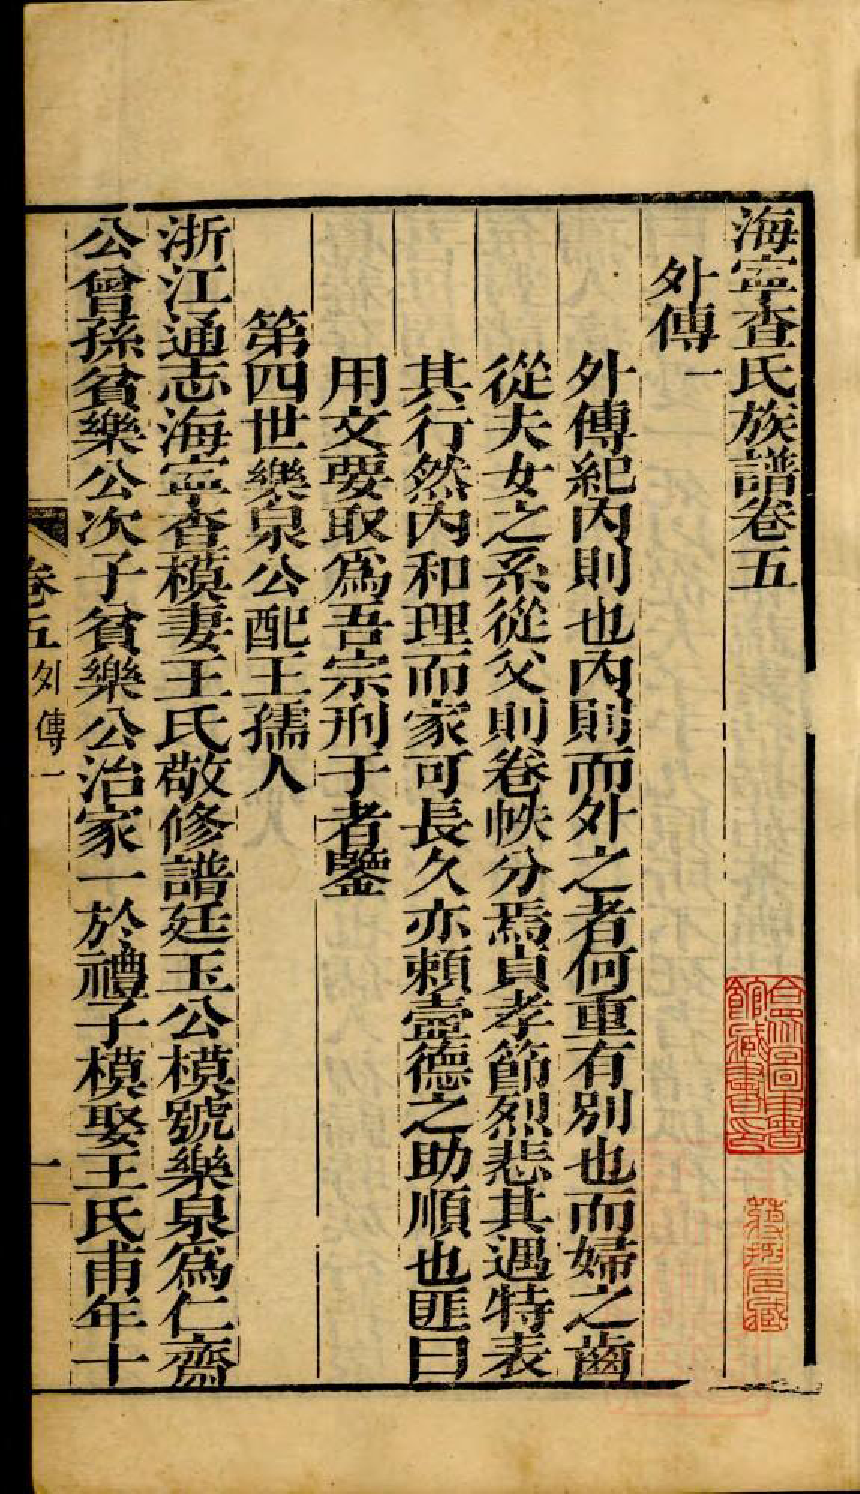 海寧查氏族譜卷五
外傳一
外傳紀內則也內則而外之者何重有別也而婦之齒
從夫女之系從父則卷帙分焉貞孝節烈悲其遇特表
其行然內和理而家可長久亦賴壼德之助順也匪曰
用文要取為吾宗刑于者鑒
第四世樂泉公配王孺人
浙江通志海寧查模妻王氏敬修譜廷玉公模號樂泉為仁齋
公曾孫貧樂公次子貧樂公治家一於禮子模娶王氏甫年十
卷五 外傳一
一
圖書
館藏書